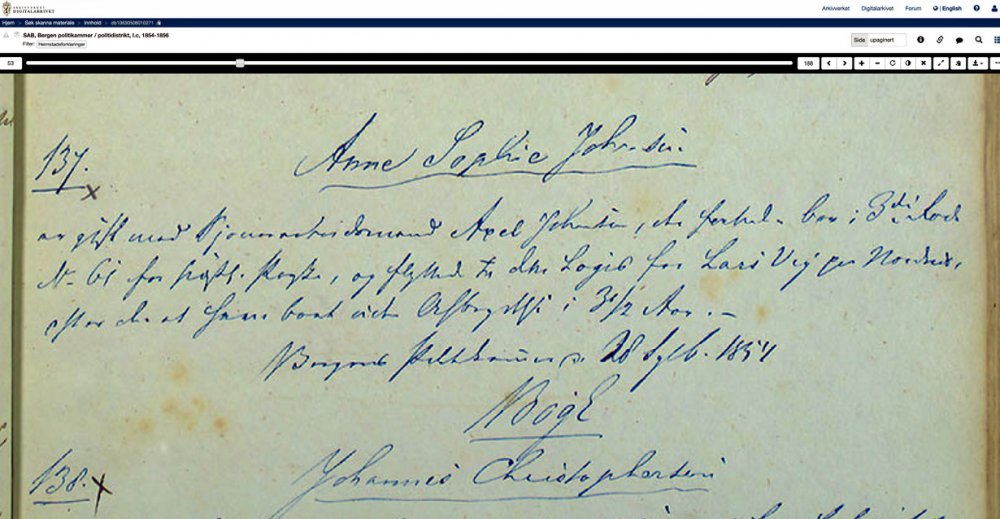 ARKIVVERKET
DIGITALARKIVET
Arkivverket Digitalarkivet Forum English
Hjem Søk skanna materiale Innhold db10630508010271
SAB, Bergen politikammer / politidistrikt, I.c, 1854-1856
Filter: Heimstadsforklaringer
Side upaginert
53
188
137.
Anne Sophie Johnsen.
er gift med Axel Johnsen, der boer i 3die Rode
No 61 for og flyttede til Logis for Lars Vig paa Nordnes,
efter der at have boet uden Afbrydelse i 3 1/2 Aar. -
Bergens Politikammer 28 Septb. 1854
138.
Johannes Christophersen